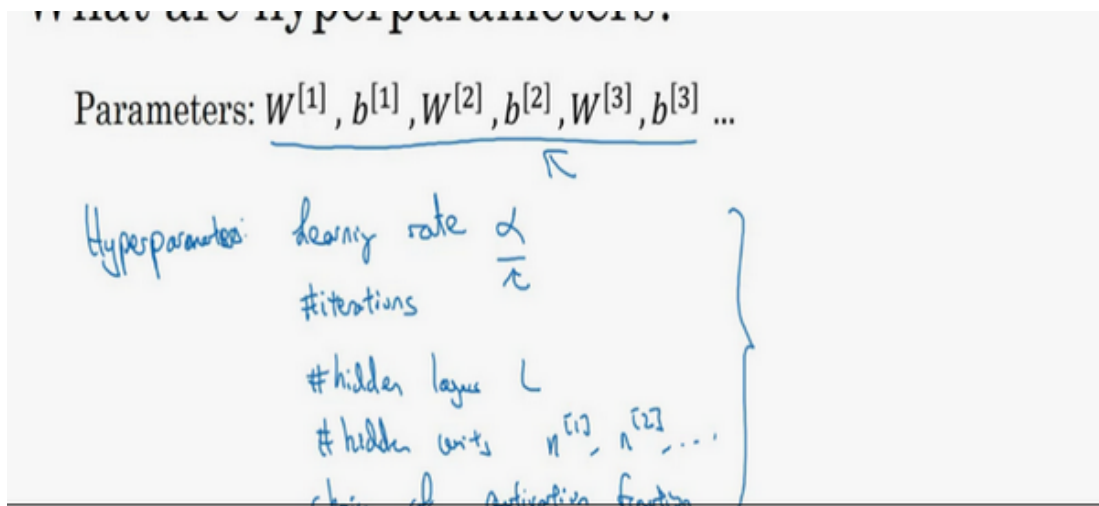 What are hyperparameters?
Parameters: W^[1], b^[1], W^[2], b^[2], W^[3], b^[3] ...
Hyperparameters: learning rate α
#iterations
#hidden layers L
#hidden units n^[1], n^[2], ....
choice of activation function